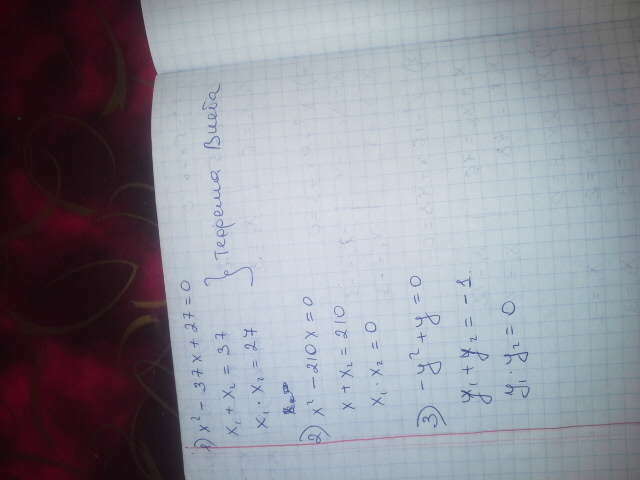 1) x² - 37x + 27 = 0
x₁ + x₂ = 37
x₁ · x₂ = 27
} Теорема Виета
2) x² - 210x = 0
x + x₂ = 210
x₁ · x₂ = 0
3) -y² + y = 0
y₁ + y₂ = -1.
y₁ · y₂ = 0